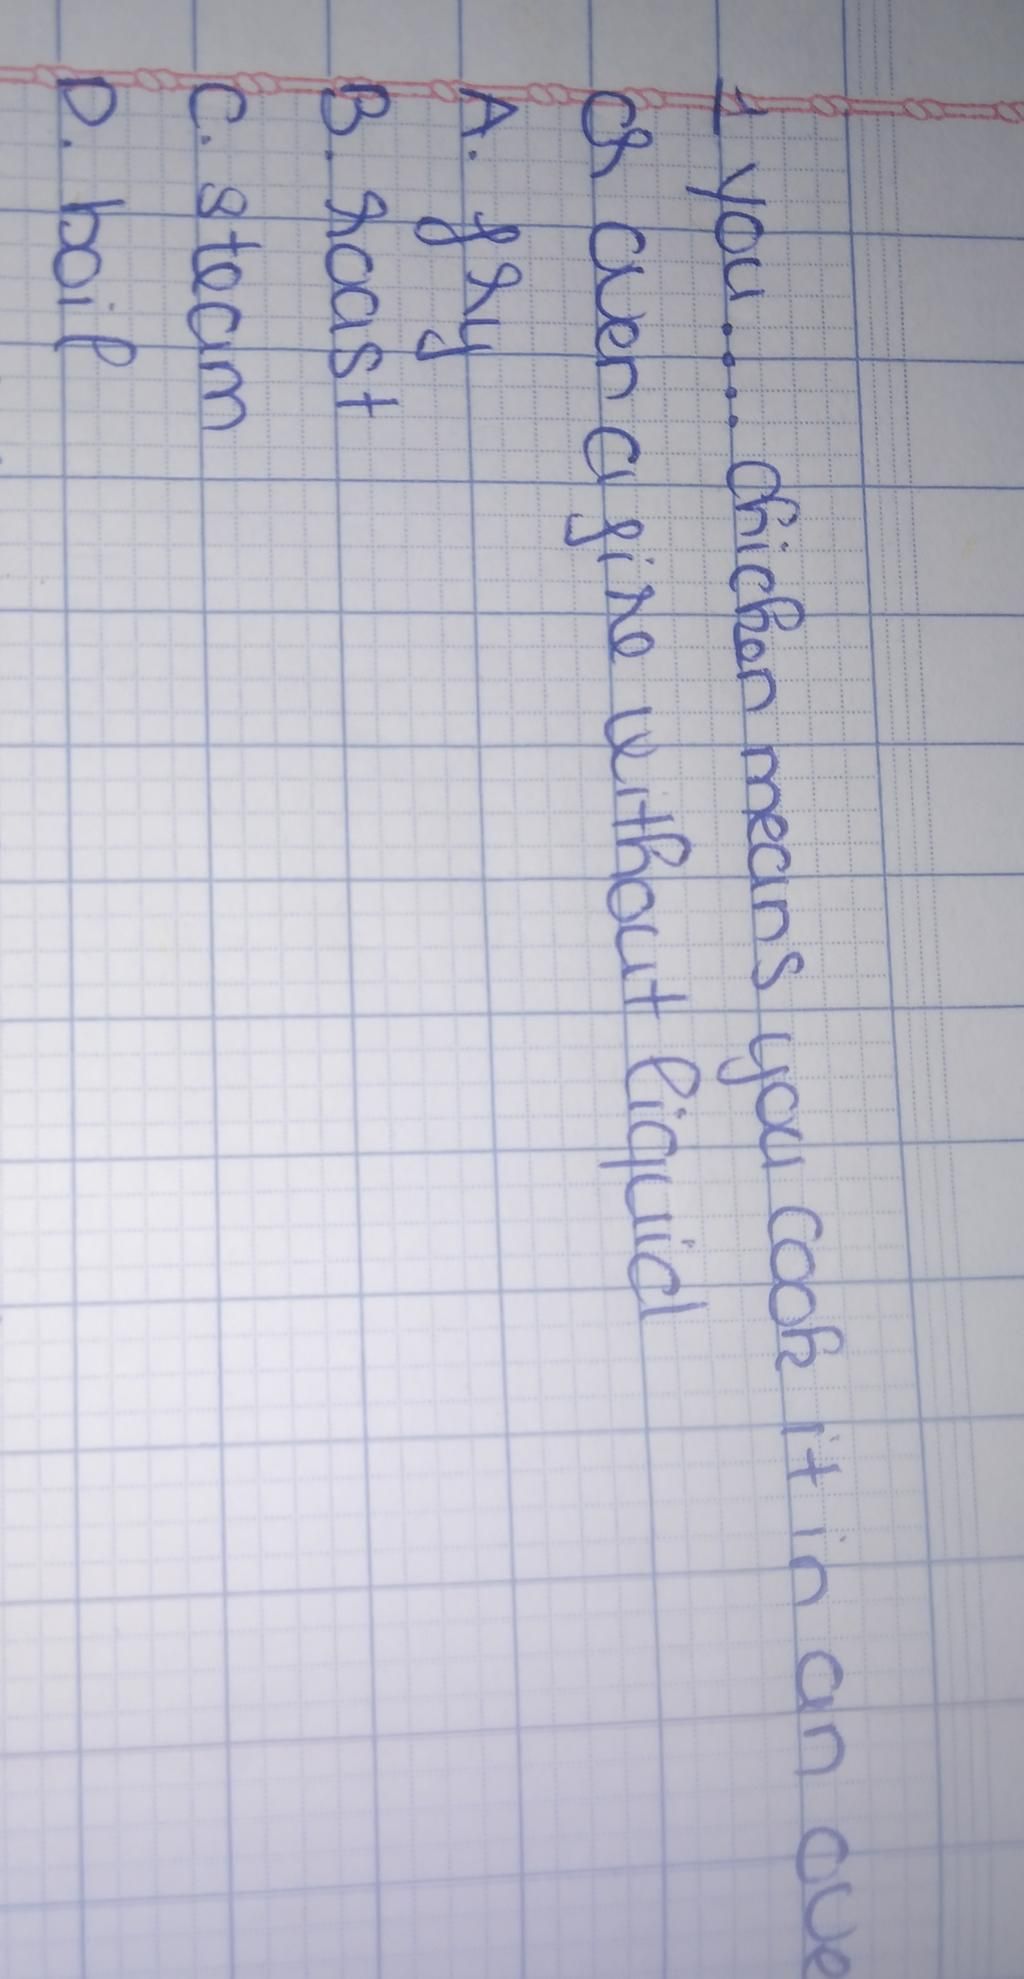 1 you..... chicken means you cook it in an ove
or over a fire without liquid
A. fry
B. roast
C. steam
D. boil